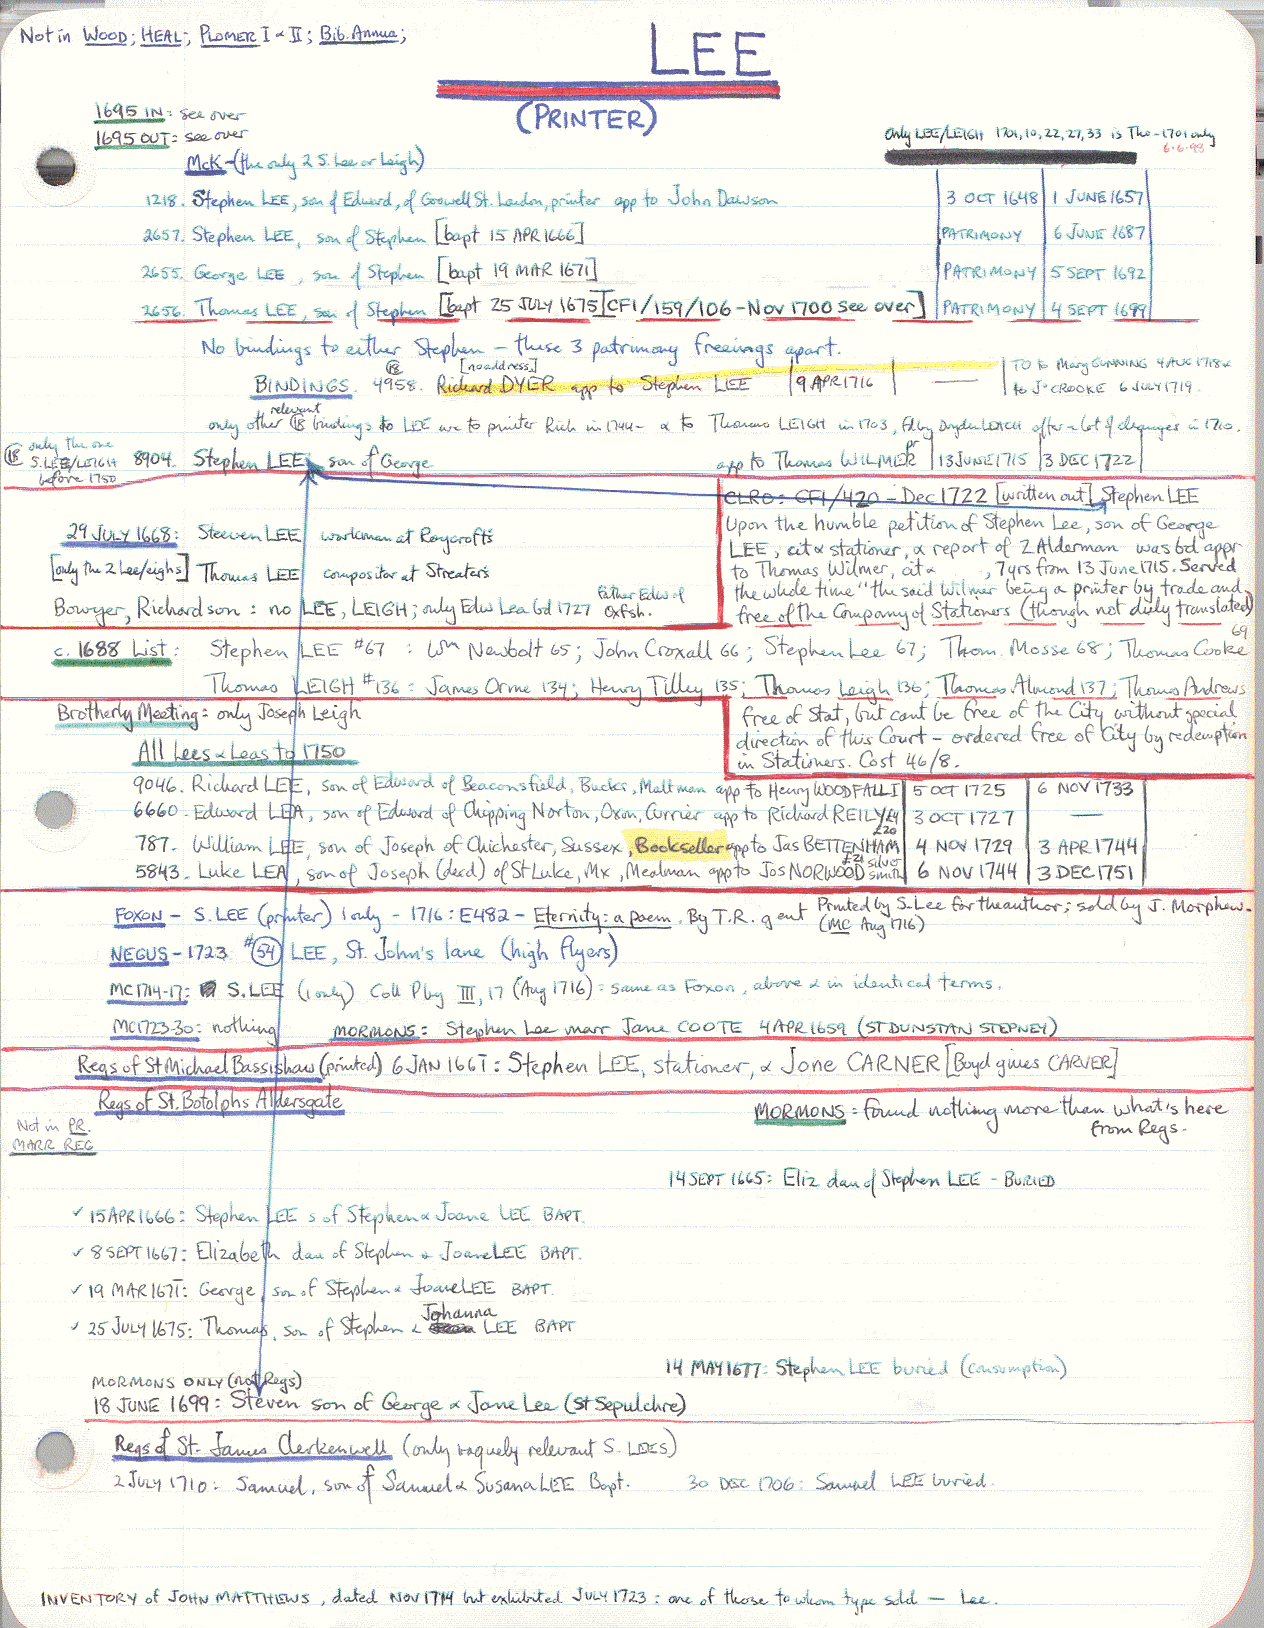 Not in WOOD; HEAL; PLOMER I & II; Bib. Annua;
LEE
(PRINTER)
1695 IN: see over
1695 OUT: see over
Only LEE/LEIGH 1701, 10, 22, 27, 33 is Tho - 1701 only
6.6.93
McK - (the only 2 S. Lee or Leigh)
1218. Stephen LEE, son of Edward, of Goswell St. London, printer app to John Dawson 3 OCT 1648 1 JUNE 1657
2657. Stephen LEE, son of Stephen [bapt 15 APR 1666] PATRIMONY 6 JUNE 1687
2655. George LEE, son of Stephen [bapt 19 MAR 1671] PATRIMONY 5 SEPT 1692
2656. Thomas LEE, son of Stephen [bapt 25 JULY 1675] [CF1/159/106 - Nov 1700 see over] PATRIMONY 4 SEPT 1699
No bindings to either Stephen - these 3 patrimony freeings apart.
[no address]
BINDINGS. 4958. Richard DYER app to Stephen LEE 9 APR 1716 — TO to Mary GUNNING 4 AUG 1718 &
to Jn CROOKE 6 JULY 1719.
relevant
only other bindings to LEE are to printer Rich in 1744 - & to Thomas LEIGH in 1703, by Dryden LEACH after a lot of changes in 1710.
only the one
S. LEE/LEIGH
before 1750
8904. Stephen LEE, son of George app to Thomas WILMER pr 13 JUNE 1715 3 DEC 1722
CLRO: CF1/420 - Dec 1722 [written out] Stephen LEE
Upon the humble petition of Stephen Lee, son of George
LEE, cit & stationer, & report of 2 Alderman was bd appr
to Thomas Wilmer, cit & , 7 yrs from 13 June 1715. Served
the whole time "the said Wilmer being a printer by trade and
free of the Company of Stationers (though not duly translated)
29 JULY 1668: Steeven LEE workman at Roycrofts
[only the 2 Lee/eighs] Thomas LEE compositor at Streaters
Bowyer, Richardson: no LEE, LEIGH; only Edw Lea bd 1727 father Edw of
Oxfsh.
c. 1688 List: Stephen LEE #67: Wm Newbolt 65; John Croxall 66; Stephen Lee 67; Thom. Mosse 68; Thomas Cooke 69
Thomas LEIGH #136: James Orme 134; Henry Tilley 135; Thomas Leigh 136; Thomas Almond 137; Thomas Andrews
Brotherly Meeting: only Joseph Leigh
free of Stat, but cant be free of the City without special
direction of this Court - ordered free of City by redemption
in Stationers. Cost 46/8.
All Lees & Leas to 1750
9046. Richard LEE, son of Edward of Beaconsfield, Bucks, Maltman app to Henry WOODFALL I 5 OCT 1725 6 NOV 1733
6660. Edward LEA, son of Edward of Chipping Norton, Oxon, Currier app to Richard REILY £4 3 OCT 1727 —
£20
787. William LEE, son of Joseph of Chichester, Sussex, Bookseller app to Jas BETTENHAM 4 NOV 1729 3 APR 1744
£21 silver
smith
5843. Luke LEA, son of Joseph (decd) of St Luke, Mx, Mealman app to Jos NORWOOD 6 NOV 1744 3 DEC 1751
FOXON - S. LEE (printer) 1 only - 1716: E482 - Eternity: a poem. By T.R. gent Printed by S. Lee for the author; sold by J. Morphew.
(MC Aug 1716)
NEGUS - 1723 #54 LEE, St. John's lane (high flyers)
MC 1714-17: S. LEE (1 only) Coll Pbg III, 17 (Aug 1716): same as Foxon, above & in identical terms.
MC 1723-30: nothing MORMONS: Stephen Lee marr Jane COOTE 4 APR 1659 (ST DUNSTAN STEPNEY)
Regs of St Michael Bassishaw (printed) 6 JAN 1661: Stephen LEE, stationer, & Jone CARNER [Boyd gives CARVER]
Regs of St. Botolphs Aldersgate
MORMONS: found nothing more than what's here
from Regs.
Not in PR.
MARR REG
14 SEPT 1665: Eliz dau of Stephen LEE - BURIED
✓ 15 APR 1666: Stephen LEE s of Stephen & Joane LEE BAPT.
✓ 8 SEPT 1667: Elizabeth dau of Stephen & Joane LEE BAPT.
✓ 19 MAR 1671: George, son of Stephen & Joane LEE BAPT.
Johanna
✓ 25 JULY 1675: Thomas, son of Stephen & LEE BAPT
14 MAY 1677: Stephen LEE buried (consumption)
MORMONS ONLY (not Regs)
18 JUNE 1699: Steven son of George & Jane Lee (St Sepulchre)
Regs of St. James Clerkenwell (only vaguely relevant S. LEES)
2 JULY 1710: Samuel, son of Samuel & Susana LEE Bapt. 30 DEC 1706: Samuel LEE buried.
INVENTORY of JOHN MATTHEWS, dated NOV 1714 but exhibited JULY 1723: one of those to whom type sold — Lee.